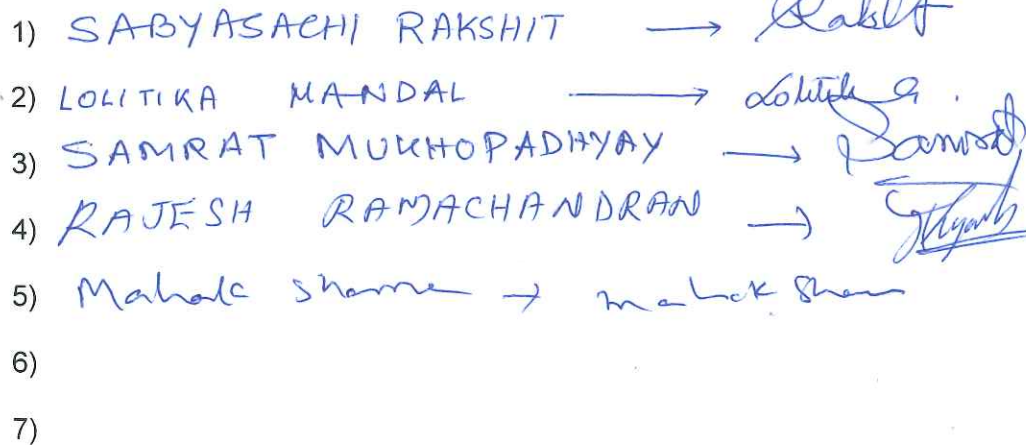 1) SABYASACHI RAKSHIT → Rakshit
2) LOLITIKA MANDAL → Lolitika
3) SAMRAT MUKHOPADHYAY → Samrat
4) RAJESH RAMACHANDRAN →
5) Mahak Sharma → mahak Sharma
6)
7)